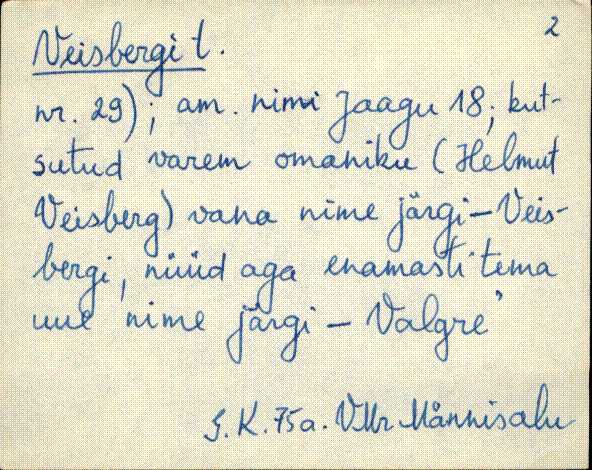 2
Veisbergi t.
nr. 29); am. nimi Jaagu 18; kut-
sutud varem omaniku (Helmut
Veisberg) vana nime järgi - Veis-
bergi, nüüd aga enamasti tema
uue nime järgi - Valgre"
J. K. 75a. VMr Männisalu